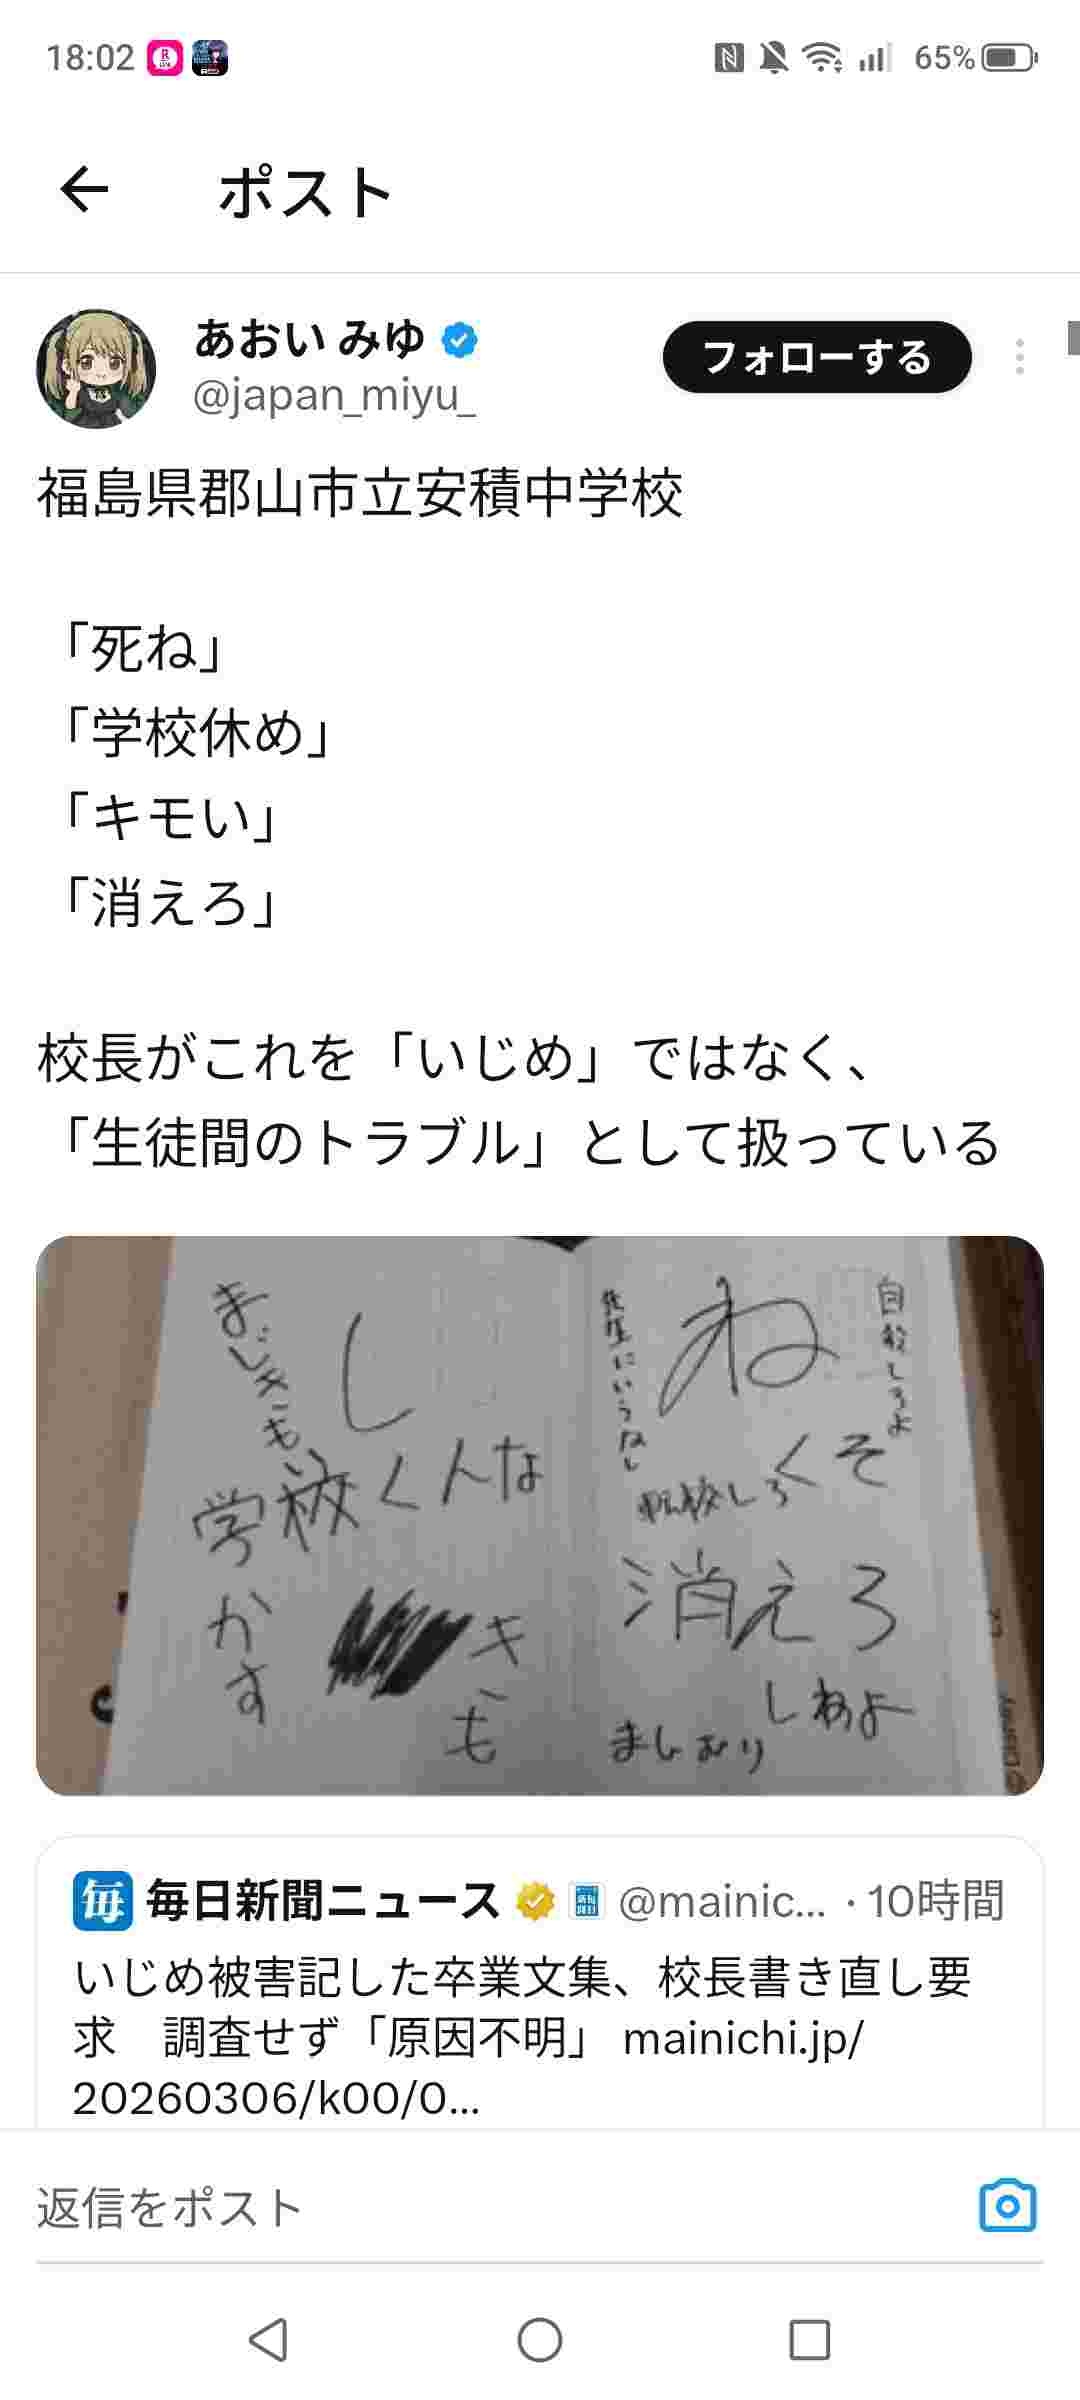 18:02
65%
ポスト
あおい みゆ
@japan_miyu_
フォローする
福島県郡山市立安積中学校
「死ね」
「学校休め」
「キモい」
「消えろ」
校長がこれを「いじめ」ではなく、
「生徒間のトラブル」として扱っている
自殺しろよ
ね
先生にいうなし
くそ
転校しろ
消えろ
しねよ
し
まじきもい
学校くんな
かす
キも
毎 毎日新聞ニュース @mainic... · 10時間
いじめ被害記した卒業文集、校長書き直し要
求　調査せず「原因不明」 mainichi.jp/
20260306/k00/0...
返信をポスト